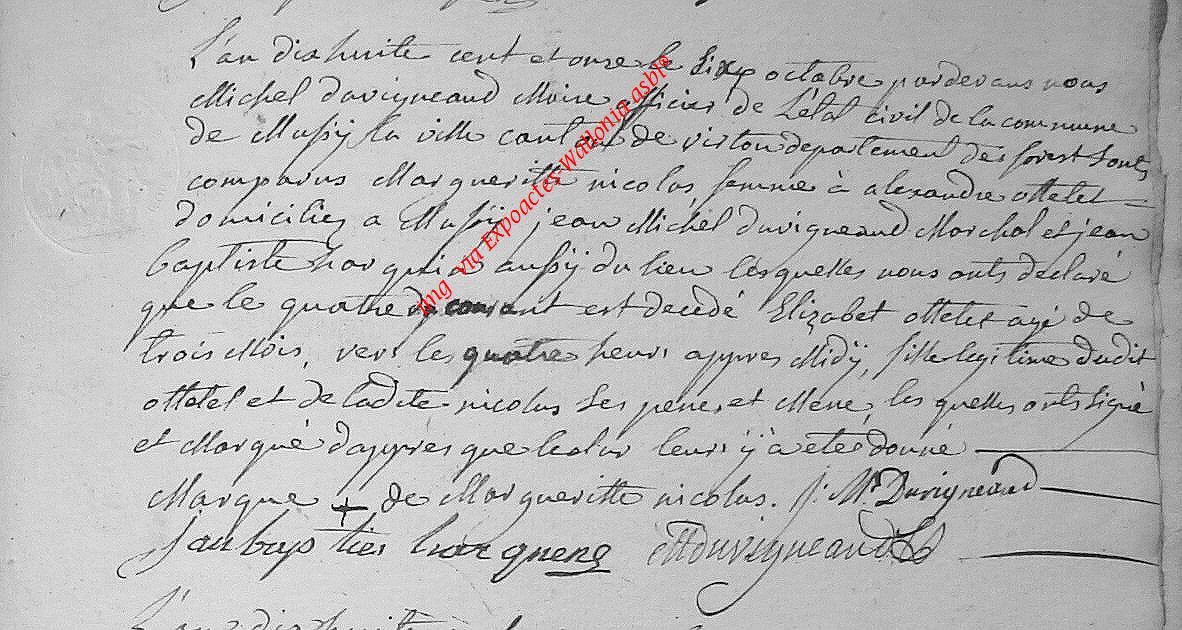 L'an dix huite cent et onze le six octobre pardevans nous
Michel Duvigneaud Maire officier de L'état civil de la commune
de Mussÿ la ville canton de virton departement des forest sonts
comparus Margueritte nicolas femme à alexandre ottelet
domiciliez a Mussÿ, jean Michel Duvigneaud Marchal et jean
baptiste aussÿ du lieu lesquelles nous onts declaré
que le quatre du courant est decedé Elizabet ottelet agé de
trois Mois, vers les quatre heurs appres Midÿ, fille legitime dudit
ottelet et de ladite nicolas ses pere, et Mere, les quelles onts signé
et Marqué d'appres que leur ÿ a etée donné
Marque + de Margueritte nicolas. J: M: Duvigneaud
Jan bapties MDuvigneaud
L'an dix huite
img via Expoactes-wallonia-asbl©